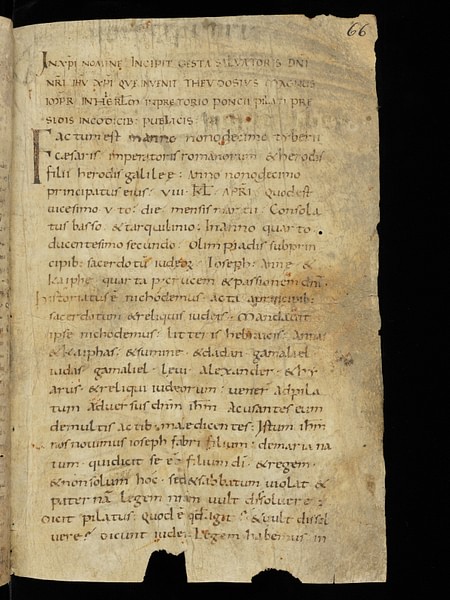 66
IN XPI NOMINE INCIPIT GESTA SALVATORIS DNI
NRI IHU XPI QUE INVENIT THEUDOSIUS MAGNUS
IMPR IN HIERLM IN PRETORIO PONCII PILATI PRE
SIDIS IN CODICIB: PUBLICIS:
Factum est in anno nonodecimo tyberii
cæsaris imperatoris romanorum & herodis
filii herodis galileæ: Anno nonodecimo
principatus eius: VIII KL APRI quod est
uicesimo v to: die mensis martii Consola
tus basso & tarquilino: In anno quarto
ducentesimo secundo: Olimpiadis sub prin
cipib: sacerdotū iudeoꝝ Ioseph: Anne &
kaiphe quarta p crucem & passionem dnī
historiatus ē nichodemus acta a principib:
sacerdotum & reliquis iudeis Mandauit
ipse nichodemus: litteris hebraicis Annas
& kaiphas & summe & dadan gamaliel
iudas gamaliel leui Alexander & hy
arus & reliqui iudeorum uener ad pila
tum aduersus dnm ihm Acusantes eum
de multis actib: maledicentes: Istum ihm
nos nouimus ioseph fabri filium: de maria na
tum qui dicit se eē filium dī & regem
& non solum hoc sed & sabbatum uiolat &
patter nā legem nram uult dissoluere:
Dicit pilatus: quod ē qd agit & uult dissol
uere: Dicunt iudei Legem habemus in